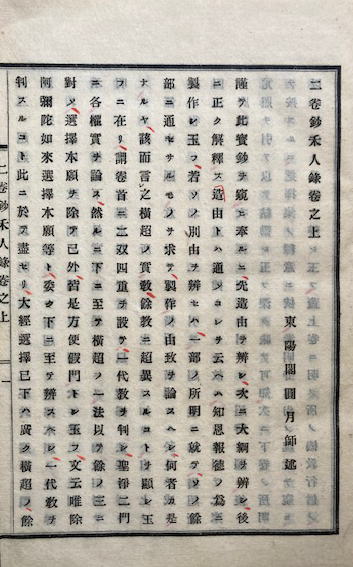 二卷鈔禾人錄卷之上
東陽閣圓月師述
謹テ此寶鈔ヲ窺ヒ奉ルニ先造由ヲ辨シ次ニ大綱ヲ辨シ後
ニ正ク解釋ス造由トハ通シテ云ヘハ知恩報德ノ爲ニ
製作シ玉フ若ソノ別由ヲ辨セハ一部ノ所明ニ就テソノ餘
部ニ通セサルモノヲ求テ製作ノ由致ヲ論スヘシ何者カ是
ナルヤ該而言之橫超ノ實敎餘敎ニ超異スルコトヲ顯シ玉
フニ在リ謂卷首ニ二双四重ヲ設テ一代敎ヲ判シ聖淨二門
ニ各權實ヲ論ス然ルニ下ニ至テ橫超ノ一法以テ餘ノ三ニ
對シ選擇本願ヲ除テ已外皆是方便假門トシ玉フ文云唯除
阿彌陀如來選擇本願等ト委クハ下ニ至テ辨スヘシ一代敎ヲ
判スルコト此ニ於テ盡セリ大經選擇已下ハ廣ク橫超ノ餘
二卷鈔禾人錄卷之上
一